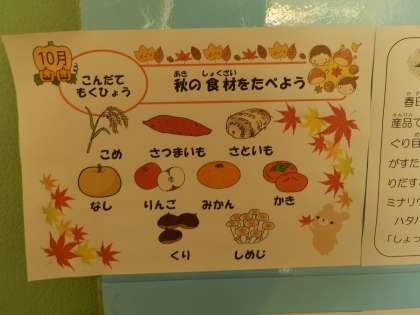 10月
こんだて
もくひょう
秋の食材をたべよう
あき しょくざい
こめ さつまいも さといも
なし りんご みかん かき
くり しめじ
春日
産品で
ぐり目
がすた
りだす
ミナリ
ハタハ
「しょっ